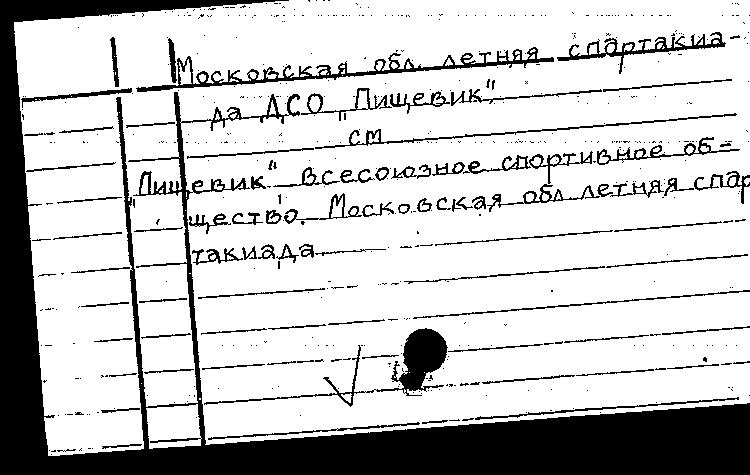 Московская обл. летняя спартакиа-
да ДСО „Пищевик“,
см
„Пищевик“ Всесоюзное спортивное об-
щество. Московская обл летняя спар
такиада.